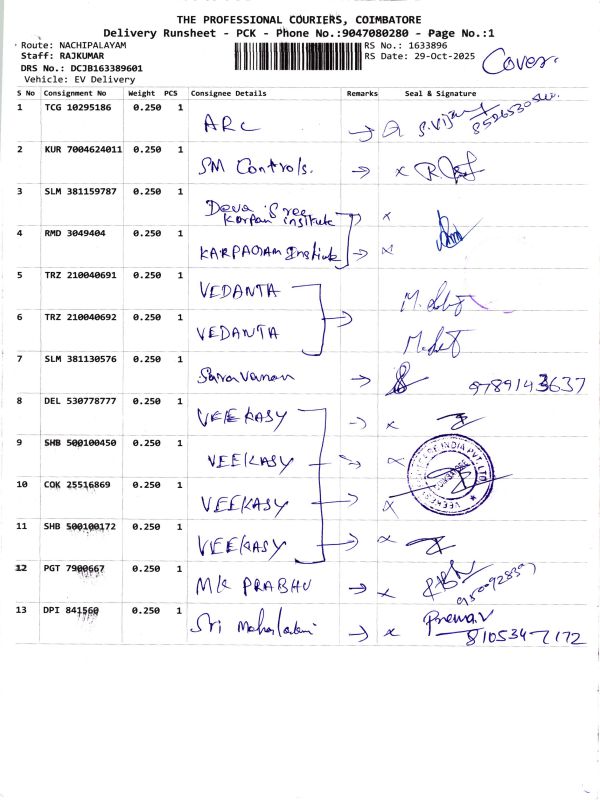 THE PROFESSIONAL COURIERS, COIMBATORE
Delivery Runsheet - PCK - Phone No.:9047080280 - Page No.:1
Route: NACHIPALAYAM RS No.: 1633896
Staff: RAJKUMAR RS Date: 29-Oct-2025
DRS No.: DCJB163389601
Vehicle: EV Delivery
Cover.
S No Consignment No Weight PCS Consignee Details Remarks Seal & Signature
1 TCG 10295186 0.250 1 ARC
2 KUR 7004624011 0.250 1 SM Controls.
3 SLM 381159787 0.250 1 Deva Sree
Karpan institute
4 RMD 3049404 0.250 1 KARPAGAM Institute
5 TRZ 210040691 0.250 1 VEDANTA
6 TRZ 210040692 0.250 1 VEDANTA
7 SLM 381130576 0.250 1 Saravanan 9789143637
8 DEL 530778777 0.250 1 VEEKASY
9 SHB 500100450 0.250 1 VEEKASY
10 COK 25516869 0.250 1 VEEKASY
11 SHB 500100172 0.250 1 VEEKASY
12 PGT 7900667 0.250 1 MK PRABHU
13 DPI 841560 0.250 1 Sri Mahalaxmi Prema.V
8105347172